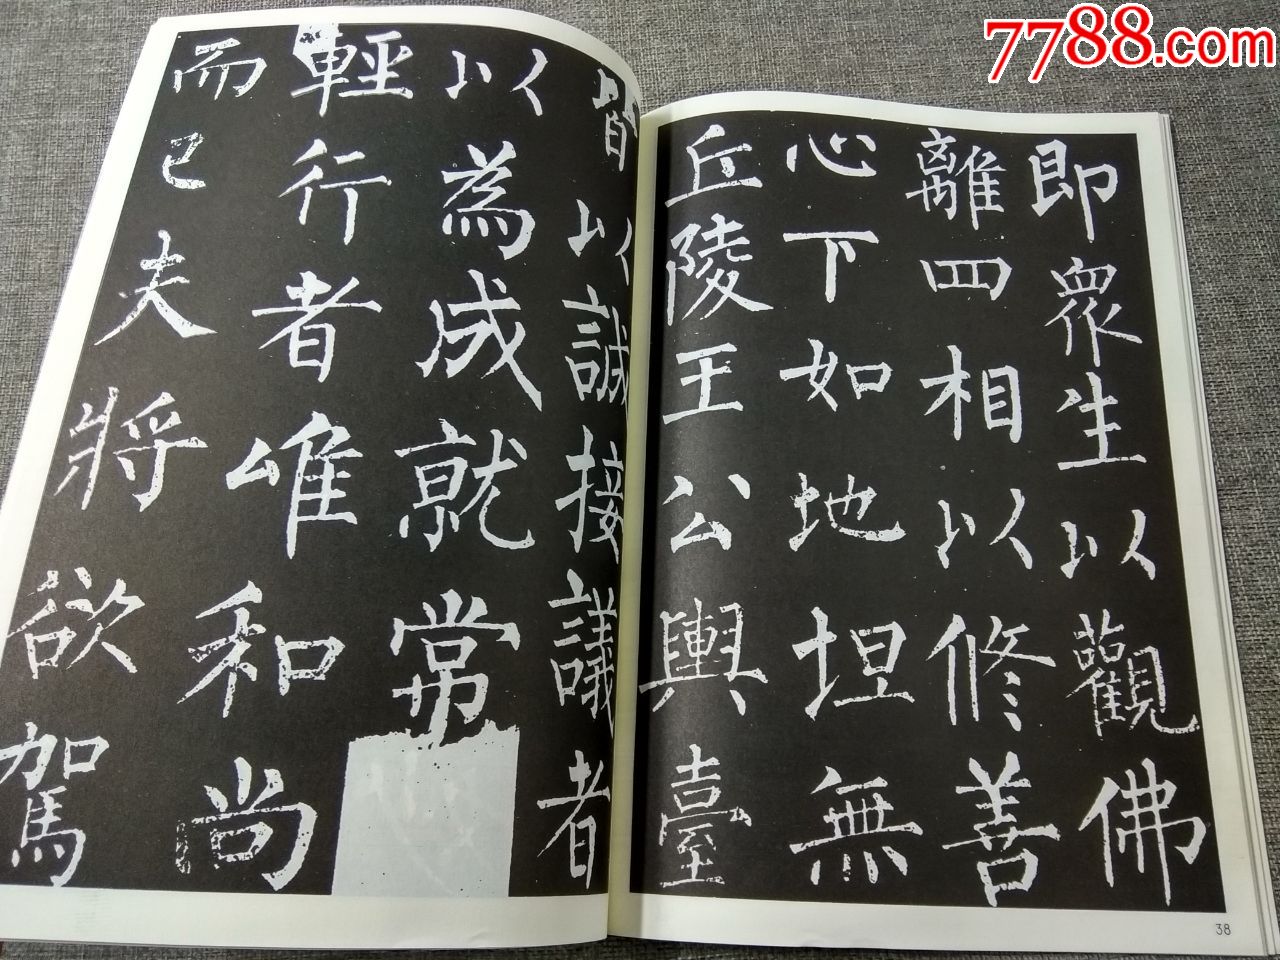 7788.com
即眾生以觀佛
離四相以修善
心下如地坦無
丘陵王公輿臺
皆以誠接議者
以為成就常
輕行者唯和尚
而已夫將欲駕
38